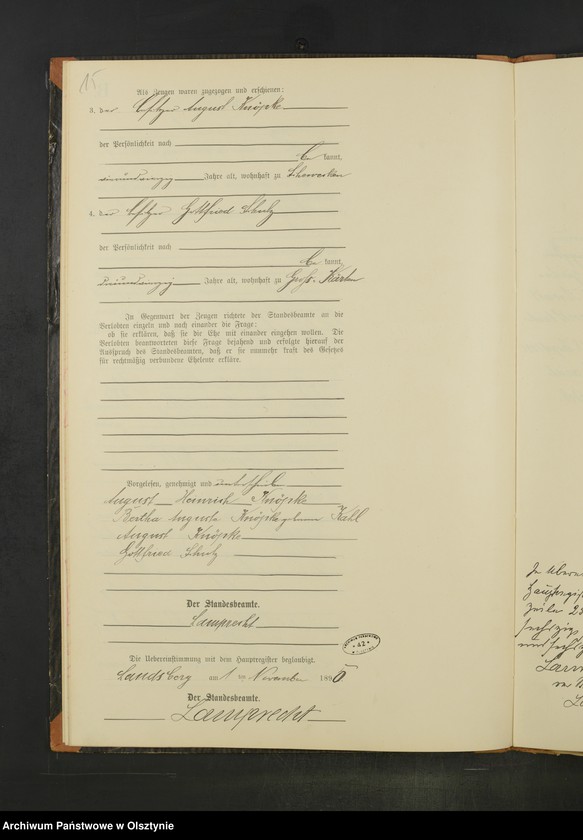 15
Als Zeugen waren zugezogen und erschienen:
3. der Besitzer August Knöpke
der Persönlichkeit nach
be kannt,
Jahre alt, wohnhaft zu
4. der Besitzer Gottfried Schulz
der Persönlichkeit nach
be kannt,
Jahre alt, wohnhaft zu Groß-
In Gegenwart der Zeugen richtete der Standesbeamte an die
Verlobten einzeln und nach einander die Frage:
ob sie erklären, daß sie die Ehe mit einander eingehen wollen. Die
Verlobten beantworteten diese Frage bejahend und erfolgte hierauf der
Ausspruch des Standesbeamten, daß er sie nunmehr kraft des Gesetzes
für rechtmäßig verbundene Eheleute erkläre.
Vorgelesen, genehmigt und
August Heinrich Knöpke
Bertha Auguste Knöpke geborene Kahl
August Knöpke
Gottfried Schulz
Der Standesbeamte.
Lamprecht
Die Uebereinstimmung mit dem Hauptregister beglaubigt.
Landsberg am 1 ten November 189
Der Standesbeamte.
Lamprecht
Archiwum Państwowe w Olsztynie